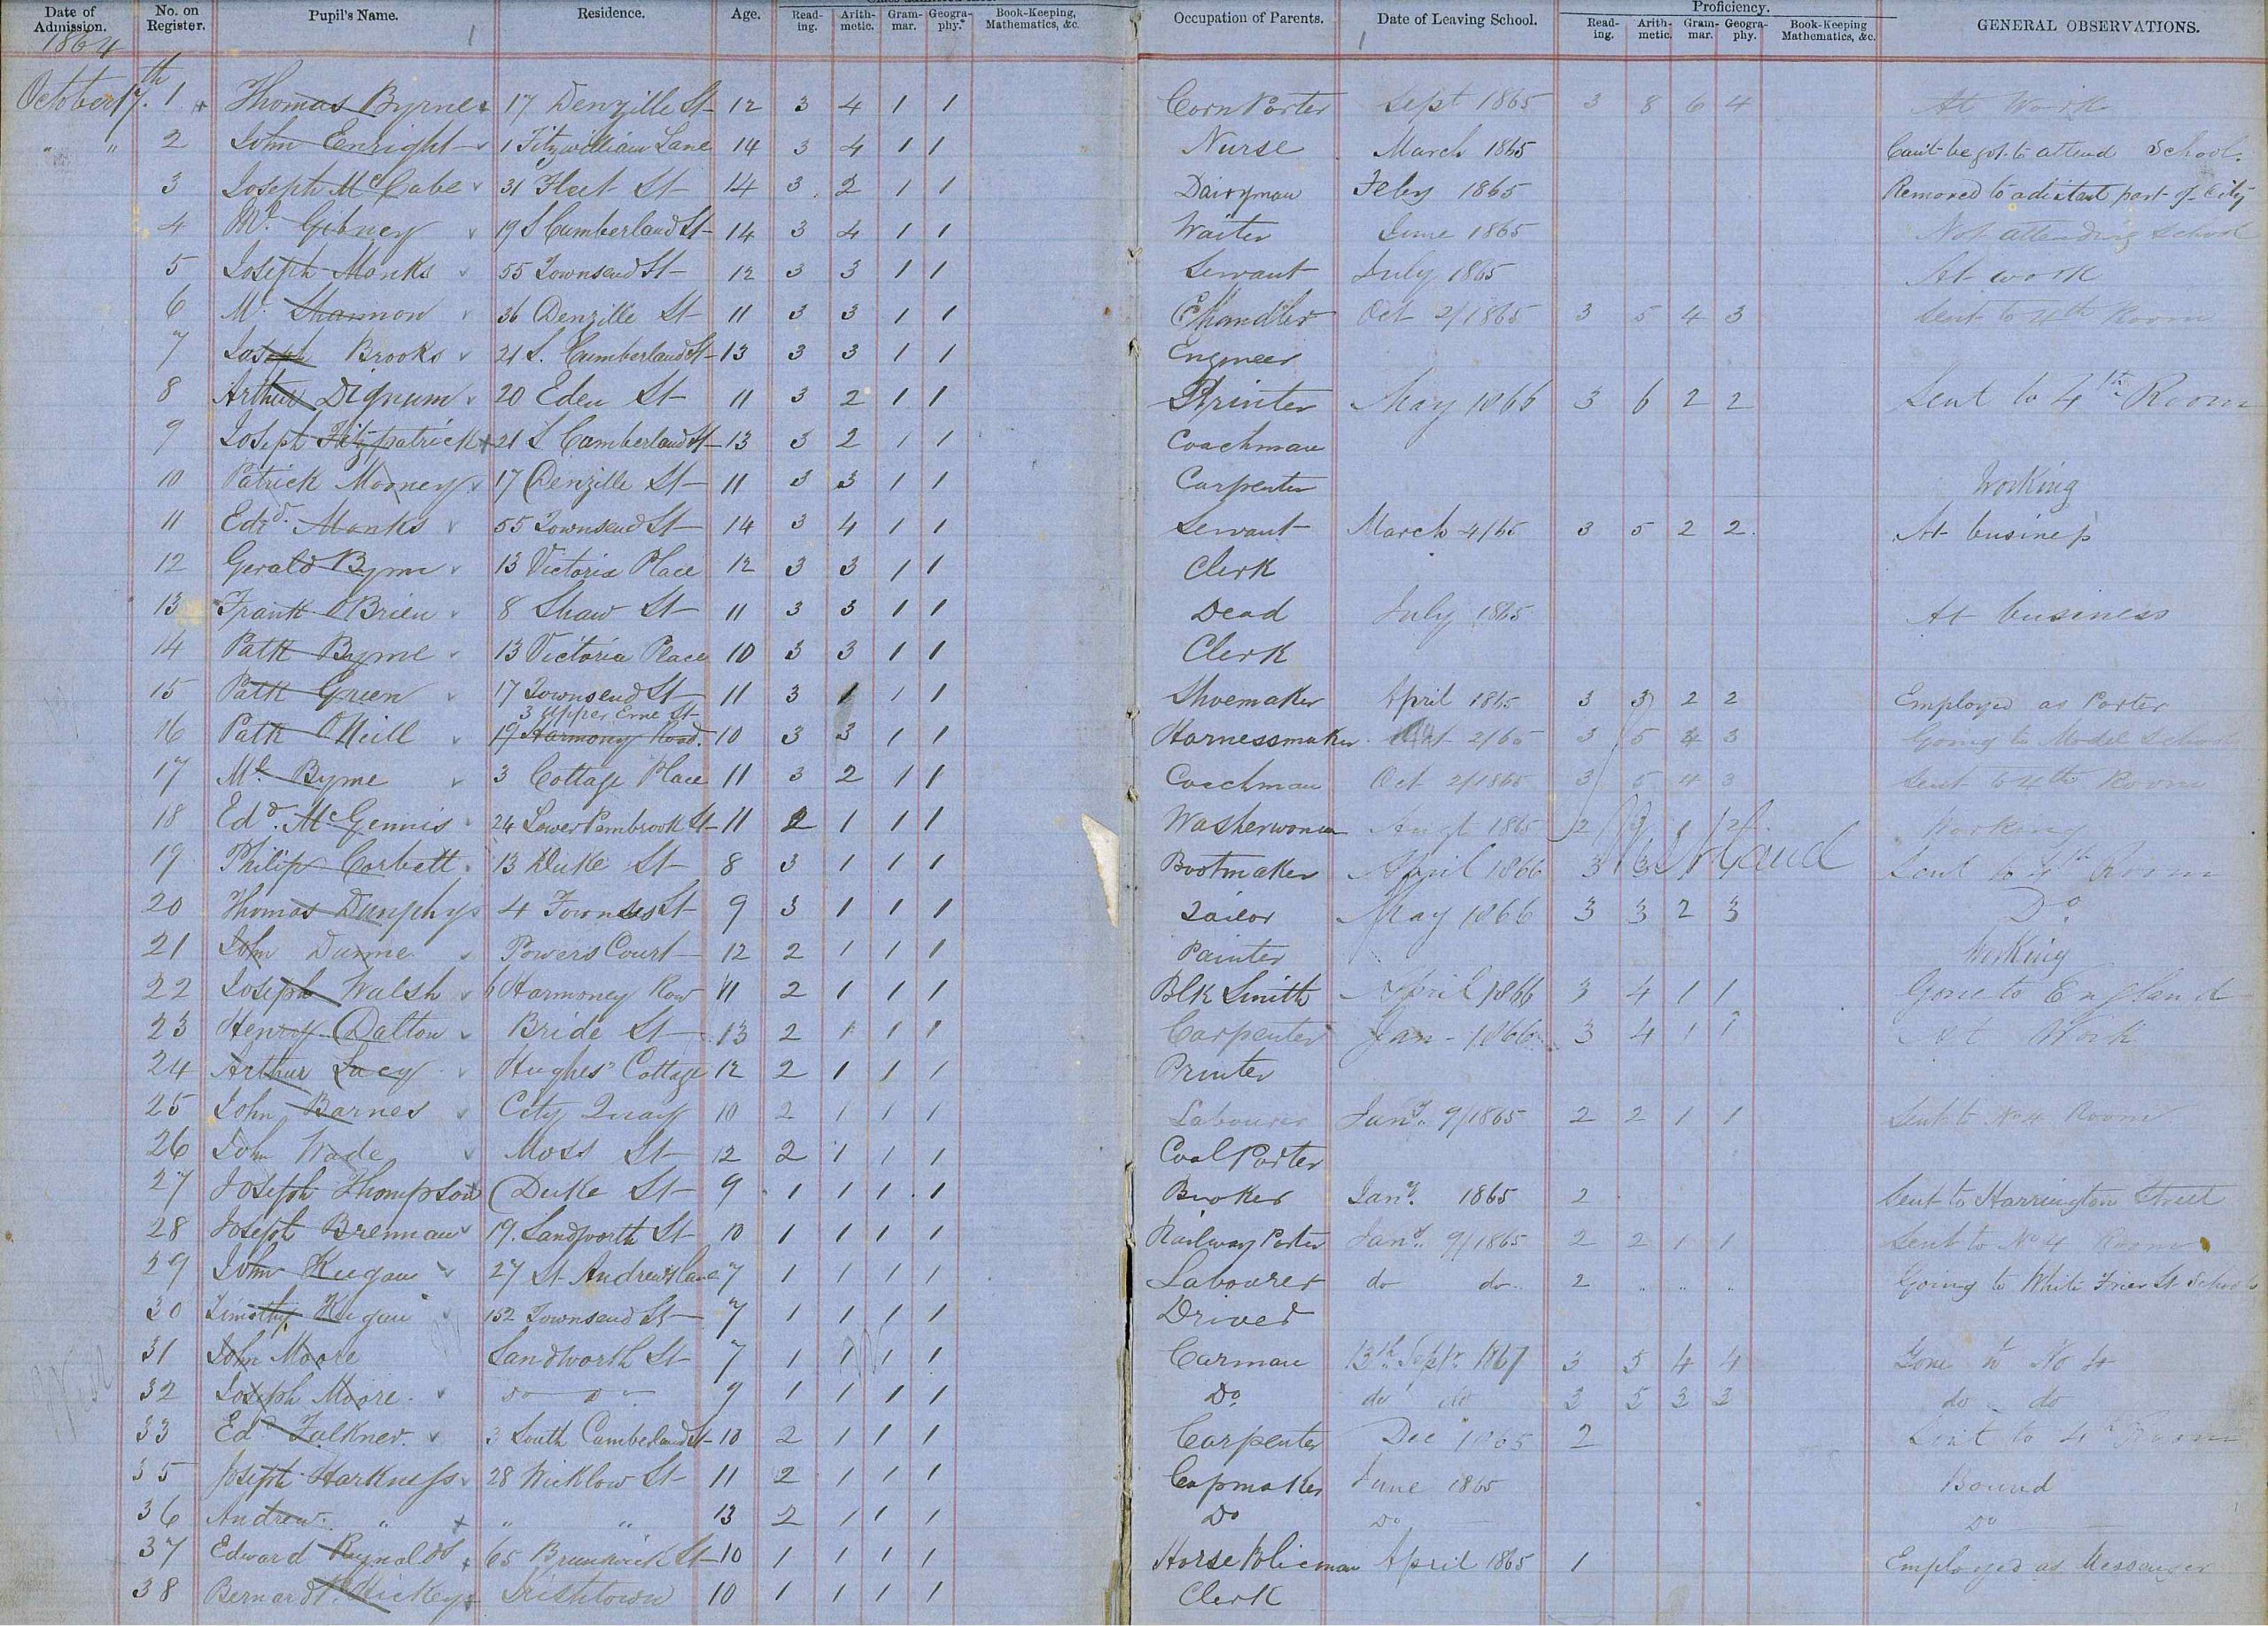 Date of Admission. No. on Register. Pupil's Name. Residence. Age. Read-ing. Arith-metic. Gram-mar. Geogra-phy. Book-Keeping, Mathematics, &c. Occupation of Parents. Date of Leaving School. Proficiency. Read-ing. Arith-metic. Gram-mar. Geogra-phy. Book-Keeping Mathematics, &c. GENERAL OBSERVATIONS.
1864
October 17th. 1 Thomas Byrne 17 Denzille St 12 3 4 1 1 Corn Porter Sept 1865 3 8 6 4 At Work
" " 2 John Enright 1 Fitzwilliam Lane 14 3 4 1 1 Nurse March 1865 Can't be got to attend School.
3 Joseph McCabe 31 Fleet St 14 3 2 1 1 Dairyman Feby 1865 Removed to a distant part of City
4 Ml. Gibney 19 S Cumberland St 14 3 4 1 1 Waiter June 1865 Not attending School
5 Joseph Monks 55 Townsend St 12 3 3 1 1 Servant July 1865 At work
6 Ml. Shannon 36 Denzille St 11 3 3 1 1 Chandler Oct 2/1865 3 5 4 3 Sent to 4th Room
7 Joseph Brooks 21 S. Cumberland St 13 3 3 1 1 Engineer
8 Arthur Dignum 20 Eden St 11 3 2 1 1 Printer May 1866 3 6 2 2 Sent to 4th Room
9 Joseph Fitzpatrick 21 S Cumberland St 13 3 2 1 1 Coachman
10 Patrick Mooney 17 Denzille St 11 3 3 1 1 Carpenter Working
11 Edd. Monks 55 Townsend St 14 3 4 1 1 Servant March 4/65 3 5 2 2 At business
12 Gerald Byrne 13 Victoria Place 12 3 3 1 1 Clerk
13 Frank OBrien 8 Shaw St 11 3 3 1 1 Dead July 1865 At business
14 Patk Byrne 13 Victoria Place 10 3 3 1 1 Clerk
15 Patk Green 17 Townsend St 11 3 1 1 1 Shoemaker April 1865 3 3 2 2 Employed as Porter
3 Upper Erne St
16 Patk ONeill 19 Harmony Road. 10 3 3 1 1 Harnessmaker Oct 2/65 3 5 4 3 Going to Model School
17 Ml. Byrne 3 Cottage Place 11 3 2 1 1 Coachman Oct 2/1865 3 5 4 3 Sent to 4th Room
18 Edd. McGennis 24 Lower Pembrook St 11 2 1 1 1 Washerwoman Augt 1865 2 3 1 2 Working
19 Philip Corbett 13 Duke St 8 3 1 1 1 Bootmaker April 1866 3 3 Sent to 4th Room
20 Thomas Dunphy 4 Townses St 9 3 1 1 1 Tailor May 1866 3 3 2 3 Do
21 John Dunne Powers Court 12 2 1 1 1 Painter Working
22 Joseph Walsh 6 Harmoney Row 11 2 1 1 1 Blk Smith April 1866 3 4 1 1 Gone to England
23 Henry Dalton Bride St 13 2 1 1 1 Carpenter Jan - 1866 3 4 1 1 At Work
24 Arthur Lacy Hughes' Cottage 12 2 1 1 1 Printer
25 John Barnes City Quay 10 2 1 1 1 Labourer Jany. 9/1865 2 2 1 1 Sent to No 4 Room
26 John Wade Moss St 12 2 1 1 1 Coal Porter
27 Joseph Thompson Duke St 9 1 1 1 1 Broker Jany. 1865 2 Sent to Harrington Street
28 Joseph Brennan 19. Sandworth St 10 1 1 1 1 Railway Porter Jany. 9/1865 2 2 1 1 Sent to No 4 Room
29 John Keegan 27 St Andrews Lane 7 1 1 1 1 Labourer do do 2 " " " Going to White Friar St Schools
30 Timothy Keegan 152 Townsend St 7 1 1 1 1 Driver
31 John Moore Sandworth St 7 1 1 1 1 Carman 13th Septr 1867 3 5 4 4 Gone to No 4
32 Joseph Moore do do 9 1 1 1 1 Do do do 3 5 3 3 do do
33 Edd Falkner. 3 South Cumberland St 10 2 1 1 1 Carpenter Dec 1865 2 Sent to 4th Room
35 Joseph Harkness 28 Wicklow St 11 2 1 1 1 Capmaker June 1865 Bound
36 Andrew " " " 13 2 1 1 1 Do Do Do
37 Edward Reynolds 65 Brunswick St 10 1 1 1 1 Horse Policman April 1865 1 Employed as Messenger
38 Bernard Hickey Irishtown 10 1 1 1 1 Clerk